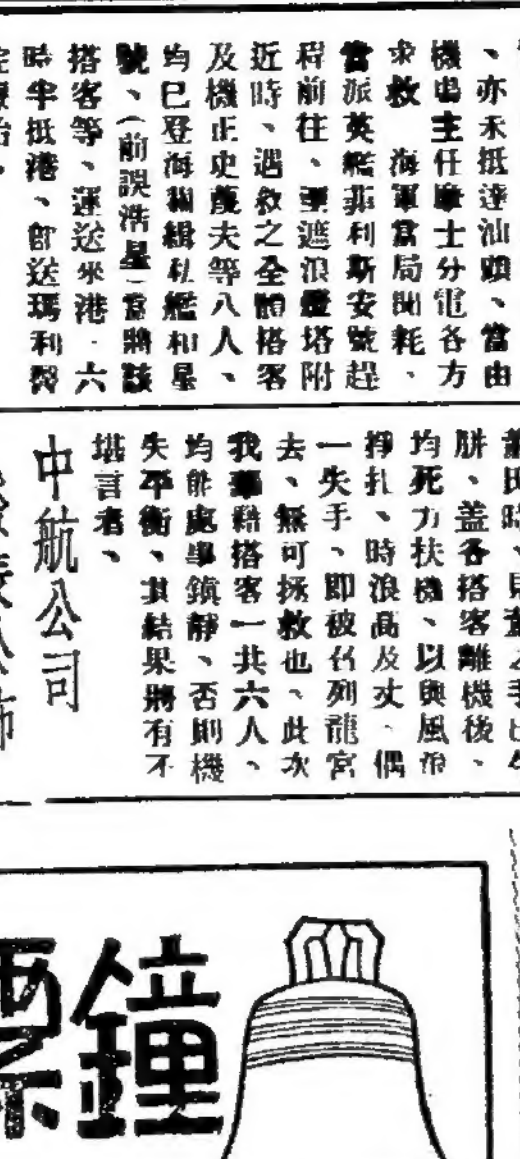 、亦未抵達汕頭、當由
機場主任 士分電各方
求救 海軍當局聞耗、
當派英艦菲利斯安號趕
程前往、 遮浪燈塔附
近時、遇救之全體搭客
及機正史 夫等八人、
均已登海關緝私艦和星
號、（前誤浩星）當將該
搭客等、運送來港、六
時半抵港、即送瑪利醫
均死力扶機、以與風帝
掙扎、時浪高及丈、偶
一失手、即被召列龍宮
去、無可拯救也、此次
我華籍搭客一共六人、
均能處事鎮靜、否則機
失平衡、其結果將有不
堪言者、
中航公司
鐘